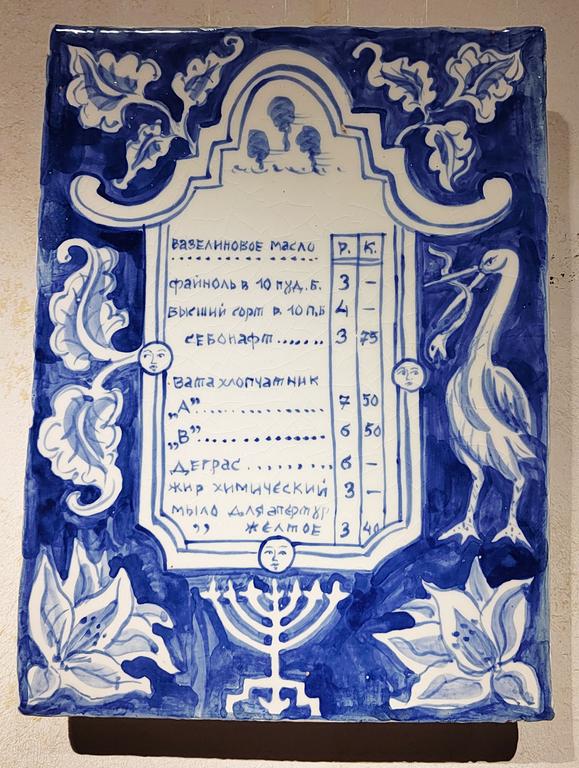 ВАЗЕЛИНОВОЕ МАСЛО Р. К.
ФАЙНОЛЬ В 10 ПУД. Б. 3 –
ВЫСШИЙ СОРТ В 10 П.Б 4 –
СЕБОНАФТ....... 3 75
ВАТА ХЛОПЧАТНИК
„А”................ 7 50
„В”................ 6 50
ДЕГРАС.......... 6 –
ЖИР ХИМИЧЕСКИЙ 3 –
МЫЛО ДЛЯ АПЕРТУР
„ ЖЕЛТОЕ 3 40